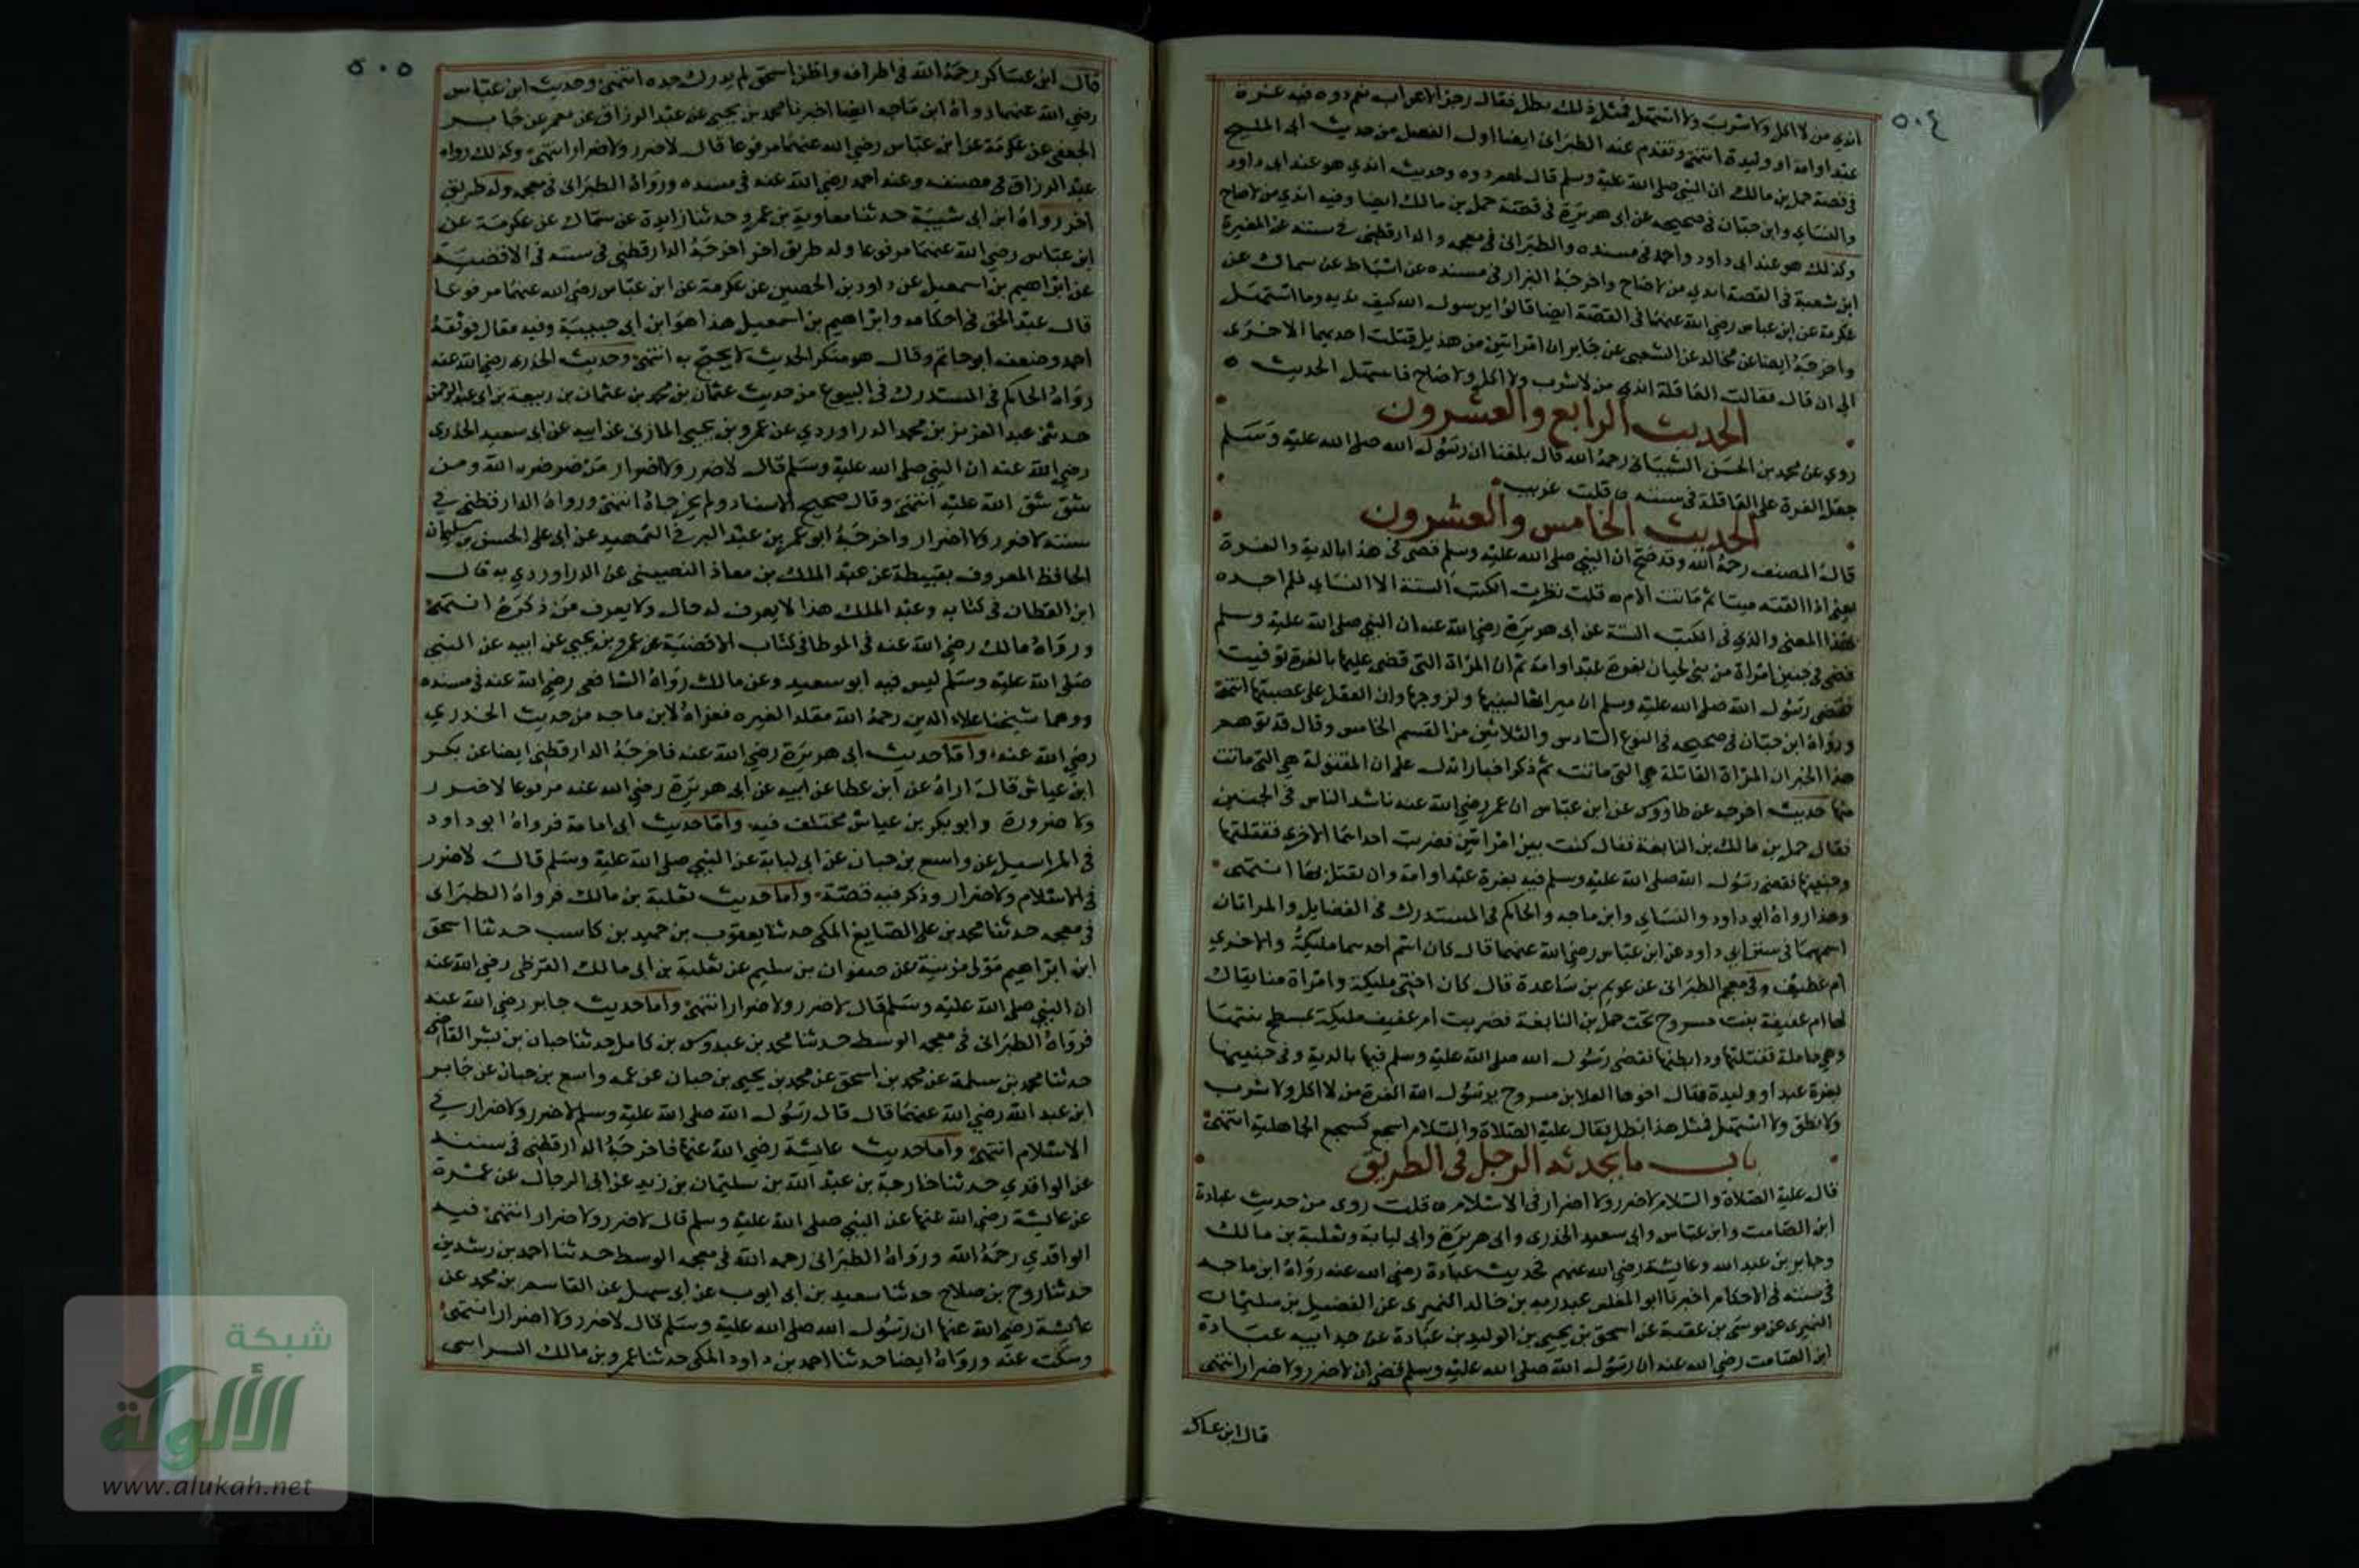 ٥٠٤
اندي من لا اكل ولا شرب ولا استهل فمثل ذلك بطل فقال رجز الاعراب نعم دوه فيه غرة
عبد او امة او وليدة انتهى وتقدم عند الطبراني ايضا اول الفصل من حديث ابي المليح
في قصة حمل بن مالك ان النبي صلى الله عليه وسلم قال لهم دوه وحديث اندي هو عند ابي داود
والنساي وابن حبان في صحيحه عن ابي هريرة في قصة حمل بن مالك ايضا وفيه اندي من لا صاح
وكذلك هو عند ابي داود واحمد في مسنده والطبراني في معجمه والدارقطني في سننه عن المغيرة
ابن شعبة في القصة اندي من لا صاح واخرجه البزار في مسنده عن اسباط عن سماك عن
عكرمة عن ابن عباس رضي الله عنهما في القصة ايضا قالوا يرسول الله كيف نديه وما استهل
واخرجه ايضا عن مجالد عن الشعبي عن جابر ان امراتين من هذيل قتلت احديهما الاخرى
الى ان قال فقالت العاقلة اندي من لا شرب ولا اكل ولا صاح فاستهل الحديث ٥
الحديث الرابع والعشرون
روي عن محمد بن الحسن الشيباني رحمه الله قال بلغنا ان رسول الله صلى الله عليه وسلم
جعل الغرة على العاقلة في سنته ٥ قلت غريب
الحديث الخامس والعشرون
قال المصنف رحمه الله وقد صح ان النبي صلى الله عليه وسلم قضى في هذا بالدية والغرة
يعني اذا القته ميتا ثم ماتت الام ٥ قلت نظرت الكتب الستة الا النساي فلم اجده
بهذا المعنى والذي في الكتب الستة عن ابي هريرة رضي الله عنه ان النبي صلى الله عليه وسلم
قضى في جنين امراة من بني لحيان بغرة عبد او امة ثم ان المراة التي قضى عليها بالغرة توفيت
فقضى رسول الله صلى الله عليه وسلم ان ميراثها لبنيها ولزوجها وان العقل على عصبتها انتهى
ورواه ابن حبان في صحيحه في النوع السادس والثلاثين من القسم الخامس وقال قد توهم
هذا الخبر ان المراة القاتلة هي التي ماتت ثم ذكر اخبارا تدل على ان المقتولة هي التي ماتت
منها حديث اخرجه عن طاووس عن ابن عباس ان عمر رضي الله عنه ناشد الناس في الجنين
فقال حمل بن مالك بن النابغة فقال كنت بين امراتين فضربت احداهما الاخرى فقتلتها
وجنينها فقضى رسول الله صلى الله عليه وسلم فيه بغرة عبد او امة وان تقتل بها انتهى
وهذا رواه ابو داود والنساي وابن ماجه والحاكم في المستدرك في الفضايل والمراتان
اسمهما في سنن ابي داود عن ابن عباس رضي الله عنهما قال كان اسم احدهما مليكة والاخرى
ام غطيف وفي معجم الطبراني عن عويم بن ساعدة قال كان اختي مليكة وامراة منا يقال
لها ام عفيفة بنت مسروح تحت حمل بن النابغة فضربت ام عفيف مليكة بمسطح بيتها
وهي حاملة فقتلتها وذا بطنها فقضى رسول الله صلى الله عليه وسلم فيها بالدية وفي جنينها
بغرة عبد او وليدة فقال اخوها العلا بن مسروح يرسول الله انغرم من لا اكل ولا شرب
ولا نطق ولا استهل فمثل هذا بطل فقال عليه الصلاة والسلام اسجع كسجع الجاهلية انتهى
باب ما يحدثه الرجل في الطريق
قال عليه الصلاة والسلام لا ضرر ولا اضرار في الاسلام ٥ قلت روى من حديث عبادة
ابن الصامت وابن عباس وابي سعيد الخدري وابي هريرة وابي لبابة وثعلبة بن مالك
وجابر بن عبد الله وعايشة رضي الله عنهم فحديث عبادة رضي الله عنه رواه ابن ماجه
في سننه في الاحكام اخبرنا ابو المغلس عبد ربه بن خالد النميري عن الفضيل بن سليمان
النميري عن موسى بن عقبة عن اسحق بن يحيى بن الوليد بن عبادة عن جد ابيه عبادة
ابن الصامت رضي الله عنه ان رسول الله صلى الله عليه وسلم قضى ان لا ضرر ولا ضرار انتهى
قال ابن عساك
٥٠٥
قال ابن عساكر رحمه الله في اطرافه واظن اسحق لم يدرك جده انتهى وحديث ابن عباس
رضي الله عنهما رواه ابن ماجه ايضا اخبرنا محمد بن يحيى عن عبد الرزاق عن معمر عن جابر
الجعفي عن عكرمة عن ابن عباس رضي الله عنهما مرفوعا قال لا ضرر ولا ضرار انتهى وكذلك رواه
عبد الرزاق في مصنفه وعنه احمد رضي الله عنه في مسنده ورواه الطبراني في معجمه وله طريق
اخر رواه ابن ابي شيبة حدثنا معاوية بن عمرو حدثنا زايدة عن سماك عن عكرمة عن
ابن عباس رضي الله عنهما مرفوعا وله طريق اخر اخرجه الدارقطني في سننه في الاقضية
عن ابراهيم بن اسمعيل عن داود بن الحصين عن عكرمة عن ابن عباس رضي الله عنهما مرفوعا
قال عبد الحق في احكامه وابراهيم بن اسمعيل هذا هو ابن ابي حبيبة وفيه مقال فوثقه
احمد وضعفه ابو حاتم وقال هو منكر الحديث لا يحتج به انتهى وحديث الخدري رضي الله عنه
رواه الحاكم في المستدرك في البيوع من حديث عثمان بن محمد بن عثمان بن ربيعة بن ابي عبد الرحمن
حدثني عبد العزيز بن محمد الدراوردي عن عمرو بن يحيى المازني عن ابيه عن ابي سعيد الخدري
رضي الله عنه ان النبي صلى الله عليه وسلم قال لا ضرر ولا ضرار من ضر ضره الله ومن
شق شق الله عليه انتهى وقال صحيح الاسناد ولم يخرجاه انتهى ورواه الدارقطني في
سننه لا ضرر ولا اضرار واخرجه ابو عمر بن عبد البر في التمهيد عن ابي علي الحسن بن سليمان
الحافظ المعروف بقبيطة عن عبد الملك بن معاذ النصيبي عن الدراوردي به قال
ابن القطان في كتابه وعبد الملك هذا لا يعرف له حال ولا يعرف من ذكره انتهى
ورواه مالك رضي الله عنه في الموطا في كتاب الاقضية عن عمرو بن يحيى عن ابيه عن النبي
صلى الله عليه وسلم ليس فيه ابو سعيد وعن مالك رواه الشافعي رضي الله عنه في مسنده
ووهم شيخنا علاء الدين رحمه الله مقلدا لغيره فعزاه لابن ماجه من حديث الخدري
رضي الله عنه واما حديث ابي هريرة رضي الله عنه فاخرجه الدارقطني ايضا عن بكر
ابن عياش قال اراه عن ابن عطا عن ابيه عن ابي هريرة رضي الله عنه مرفوعا لا ضرر
ولا ضرورة وابو بكر بن عياش مختلف فيه واما حديث ابي امامة فرواه ابو داود
في المراسيل عن واسع بن حبان عن ابي لبابة عن النبي صلى الله عليه وسلم قال لا ضرر
في الاسلام ولا ضرار وذكر فيه قصة واما حديث ثعلبة بن مالك فرواه الطبراني
في معجمه حدثنا محمد بن علي الصايغ المكي حدثنا يعقوب بن حميد بن كاسب حدثنا اسحق
ابن ابراهيم مولى مزينة عن صفوان بن سليم عن ثعلبة بن ابي مالك القرظي رضي الله عنه
ان النبي صلى الله عليه وسلم قال لا ضرر ولا ضرار انتهى واما حديث جابر رضي الله عنه
فرواه الطبراني في معجمه الوسط حدثنا محمد بن عبدوس بن كامل حدثنا حبان بن بشر القاضي
حدثنا محمد بن سلمة عن محمد بن اسحق عن محمد بن يحيى بن حبان عن عمه واسع بن حبان عن جابر
ابن عبد الله رضي الله عنهما قال قال رسول الله صلى الله عليه وسلم لا ضرر ولا ضرار في
الاسلام انتهى واما حديث عايشة رضي الله عنها فاخرجه الدارقطني في سننه
عن الواقدي حدثنا خارجة بن عبد الله بن سليمان بن زيد عن ابي الرجال عن عمرة
عن عايشة رضي الله عنها عن النبي صلى الله عليه وسلم قال لا ضرر ولا ضرار انتهى فيه
الواقدي رحمه الله ورواه الطبراني رحمه الله في معجمه الوسط حدثنا احمد بن رشدين
حدثنا روح بن صلاح حدثنا سعيد بن ابي ايوب عن ابي سهيل عن القاسم بن محمد عن
عايشة رضي الله عنها ان رسول الله صلى الله عليه وسلم قال لا ضرر ولا اضرار انتهى
وسكت عنه ورواه ايضا حدثنا احمد بن داود المكي حدثنا عمرو بن مالك الراسبي
شبكة
الألوكة
www.alukah.net